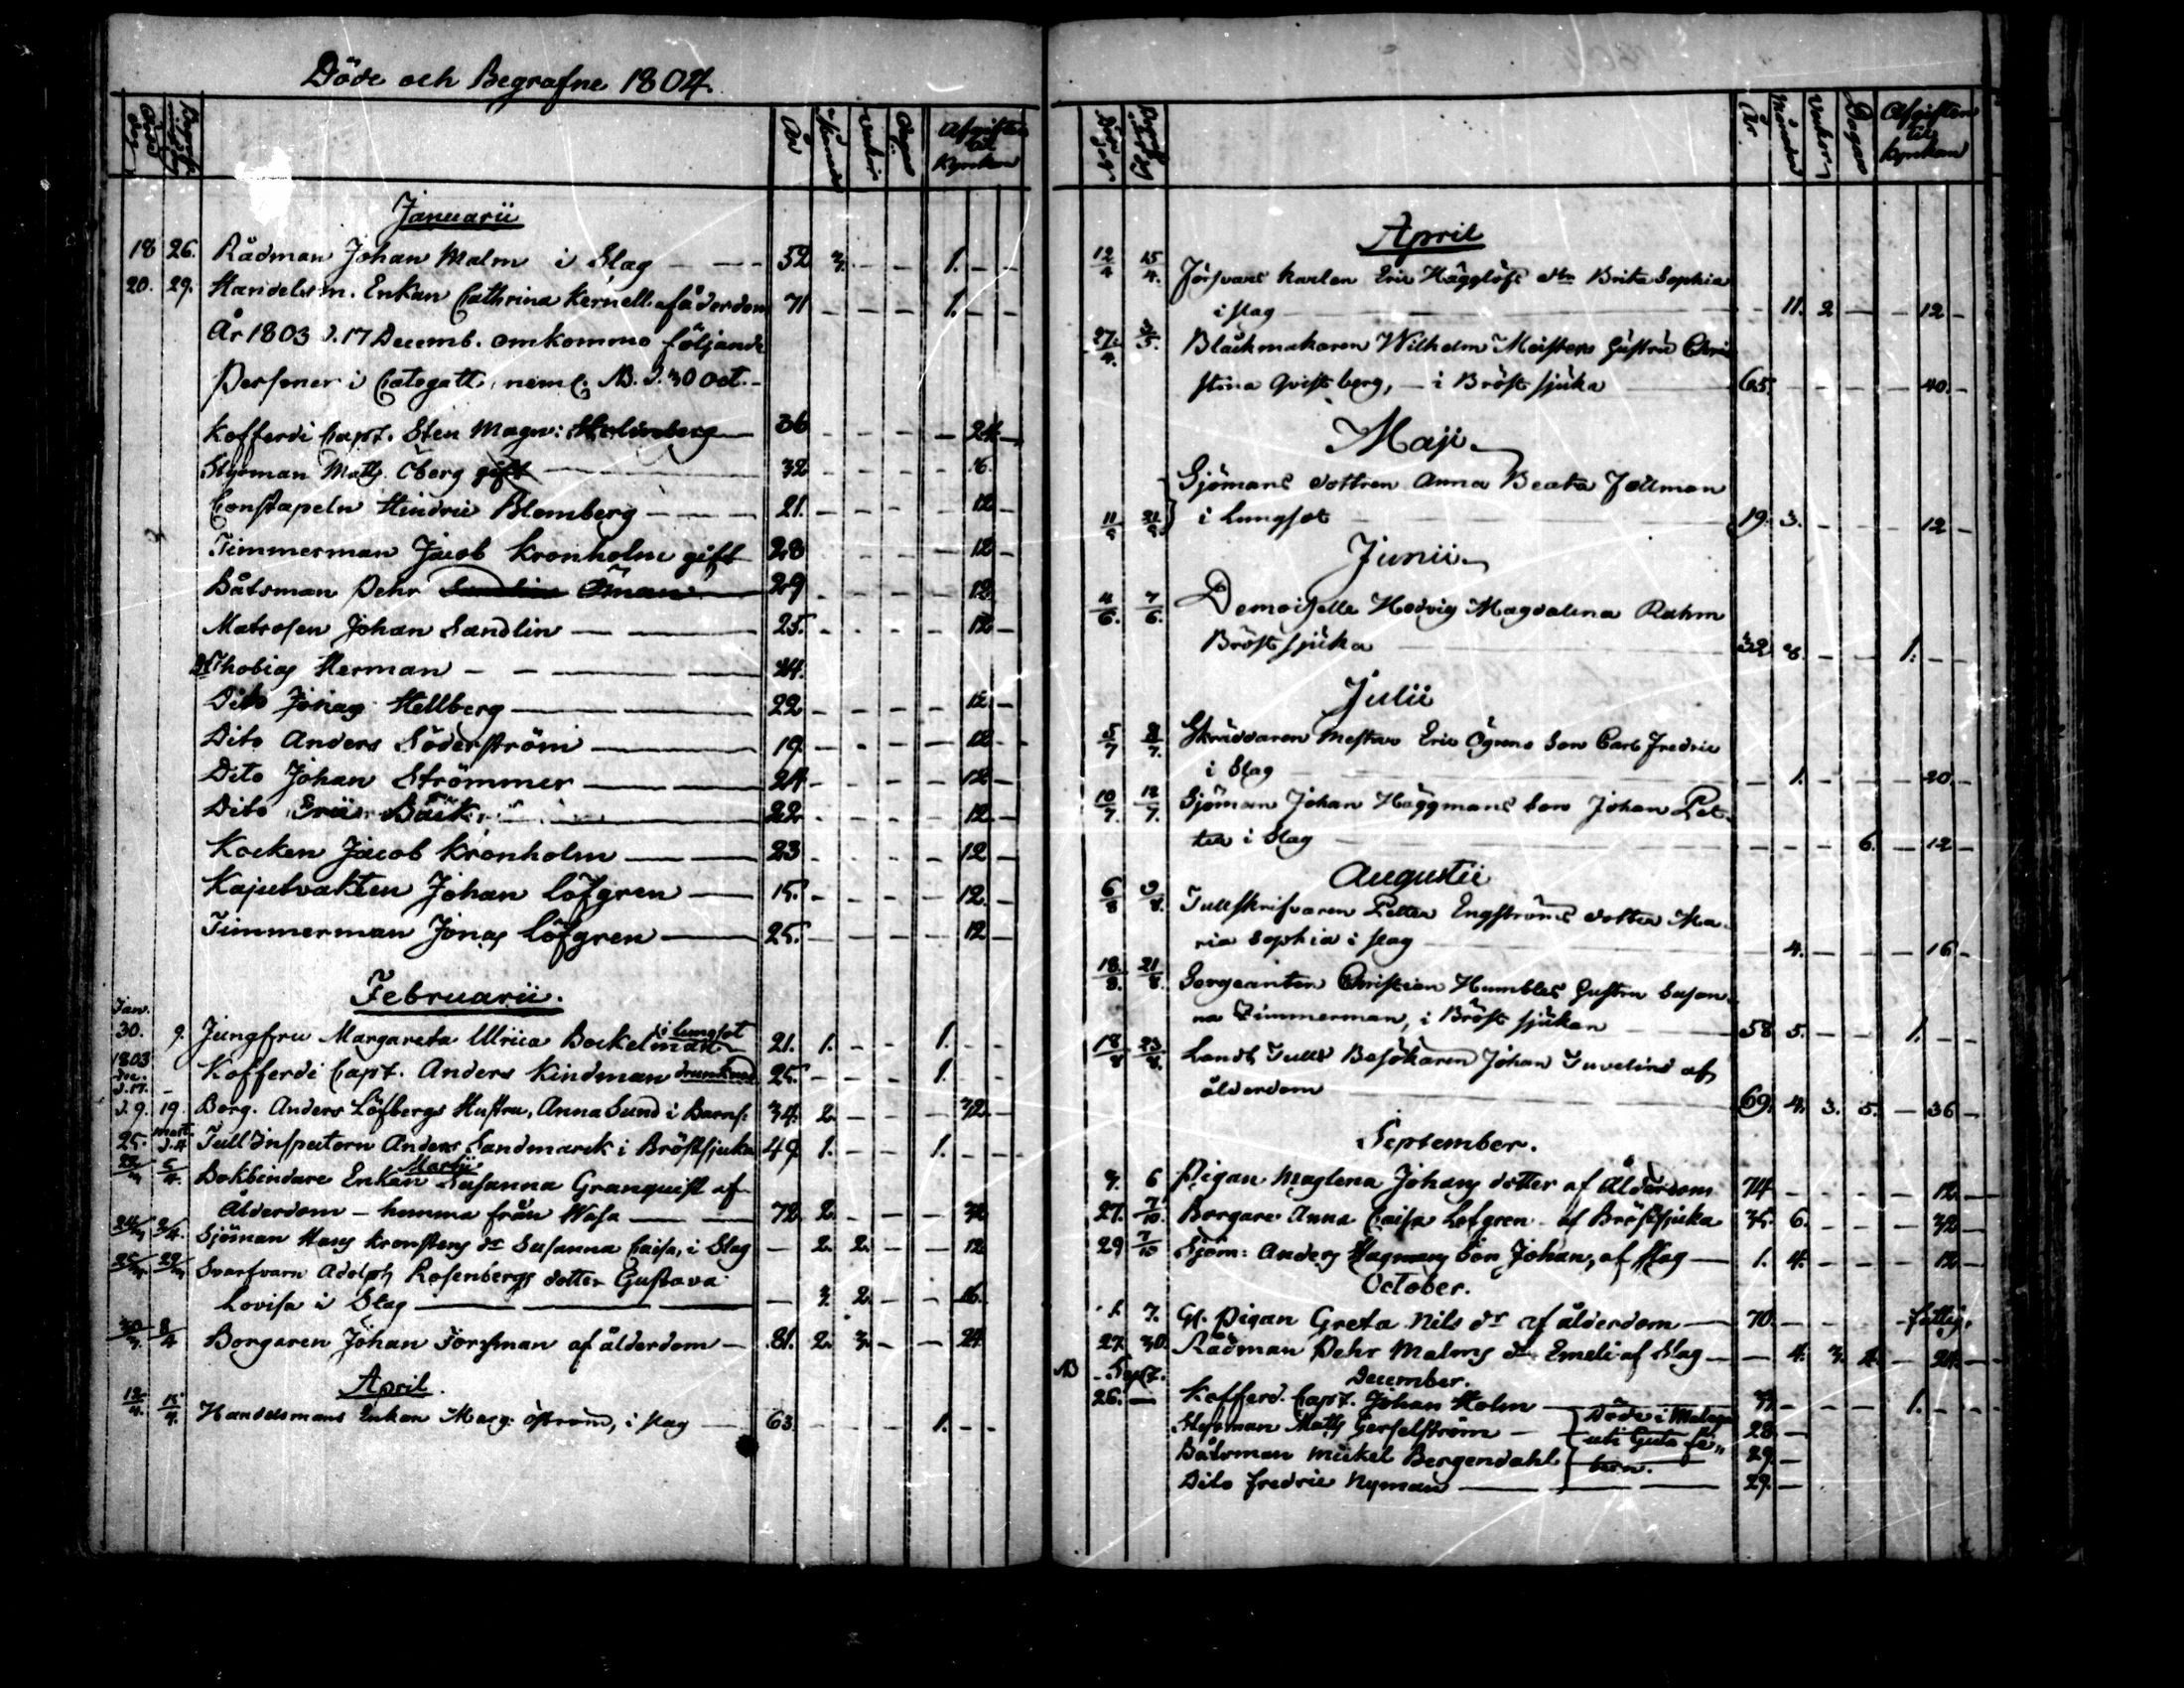 Döde och Begrafne 1804.
År Månader Veckor Dagar Afgiften til Kyrkan
Januarii
18 26. Rådman Johan Malm i Slag 52 3. - - 1. - -
20. 29. Handelsm. Enkan Cathrina Kernell af ålderdom 71 - - - 1. - -
År 1803 d. 17 Decemb. omkommo följande
Personer i Categatt, neml. NB. d. 30 Oct.
Kofferdi Capt. Sten Magn: 36 - - - - 24 -
Styrman Matts Öberg gift 32 - - - - 16.
Constapeln Hindric Blomberg 21. - - - - 12 -
Timmerman Jacob Kronholm gift 28 - - - - 12 -
Båtsman Pehr Sandlin Öman 29 - - - - 12
Matrosen Johan Sandlin 25. - - - - 12 -
Dt Thobias Herman 24.
Dito Jonas Hellberg 22 - - - - 12 -
Dito Anders Söderström 19. - - - - 12 -
Dito Johan Strömmer 24 - - - - 12 -
Dito Eric Bäck 22 - - - - 12 -
Kocken Jacob Kronholm 23 - - - - 12 -
Kajutvakten Johan Löfgren 15. - - - - 12. -
Timmerman Jonas Löfgren 25. - - - - 12 -
Februarii.
Jan. 30. 9. Jungfru Margareta Ulrica Bockelman i lungsot 21. 1. - - 1. - -
1803 Dec. d. 17. - Kofferdi Capt. Anders Kindman drunknad 25. - - - 1. - -
d. 9. 19. Borg. Anders Löfbergs Hustru, Anna Sund i Barns: 34. 2. - - - 32 -
25. Mart. d. 4 Tull Inspectorn Anders Sandmarck i Bröstsjuka 49 1. - - 1. - -
Martii
Bokbindare Enkan Susanna Granquist af
Ålderdom - hemma från Wasa 72. 2. - - -
24/3 3/4. Sjöman Hans Kronstens dr Susanna Caisa, i Slag - 2. 2. - - 12
25/3 29/3 Svarfvarn Adolph Rosenbergs dotter Gustava
Lovisa i Slag - 3. 2. - - 16.
30/3. 8/4 Borgaren Johan Forssman af ålderdom 81. 2. 3. - - 24
April.
12/4. 15/4. Handelsmans Enkan Marg: Öström, i slag 63. - - - 1. - -
År Månader Veckor Dagar Afgiften til Kyrkan
April
12/4 15/4. Försvars karlen Eric Hägglöfs dtr Brita Sophia
i slag - 11. 2 - - 12 -
27./4. 3/5. Bläckmakaren Wilhelm Meisters hustru Chri
stina Qvistberg, - i Bröstsjuka 65. - - - - 40. -
Maji
Sjömans dottren Anna Beata Fellman
i Lungsot 19. 3. - - - 12 -
Junii
4/6. 7/6. Demoiselle Hedvig Magdalena Rahm
Bröstsjuka 32 8. - - 1. - -
Julii
5/7 8/7. Skräddaren Mestare Eric Ögrens Son Carl Fredric
i Slag - 1. - - - 20. -
10/7. 12/7. Sjöman Johan Häggmans Son Johan Pet-
ter i Slag - - - 6. - 12 -
Augusti
6/8 9/8. Tullskrifvaren Petter Engströms dotter Ma-
ria Sophia i slag - 4. - - - 16 -
18./8. 21/8. Sergeanten Christian Humbles hustru Susan-
na Zimmerman, i Bröst sjukan 58 5. - - 1. - -
18/8 23/8. Landt Tulls Besökaren Johan Juvelius af
ålderdom 69. 4. 3. 5. - 36 -
September.
6 Pigan Maglena Johans dotter af Ålderdom 74 - - - - 12 -
27. 7/10. Borgare Anna Caisa Löfgren af Bröstsjuka 35. 6. - - - 32 -
29 7/10 Sjöm: Anders Hagmans Son Johan, af Slag 1. 4. - - - 12 -
October.
1. 7. Gl. Pigan Greta Nils dr af ålderdom 70. - - - fattig.
27. 30. Rådman Pehr Malms dtr Emeli af Slag - 4. 3. 4. - 24. -
December.
NB Sept. 26. - Kofferd. Capt. Johan Holm - - - 1. - -
Styrman Matts Gerselström 28 -
Båtsman Mickel Bergendahl 29. -
Dito Fredric Nyman 29. -
Döde i Malaga
uti Gula fe-
bern.